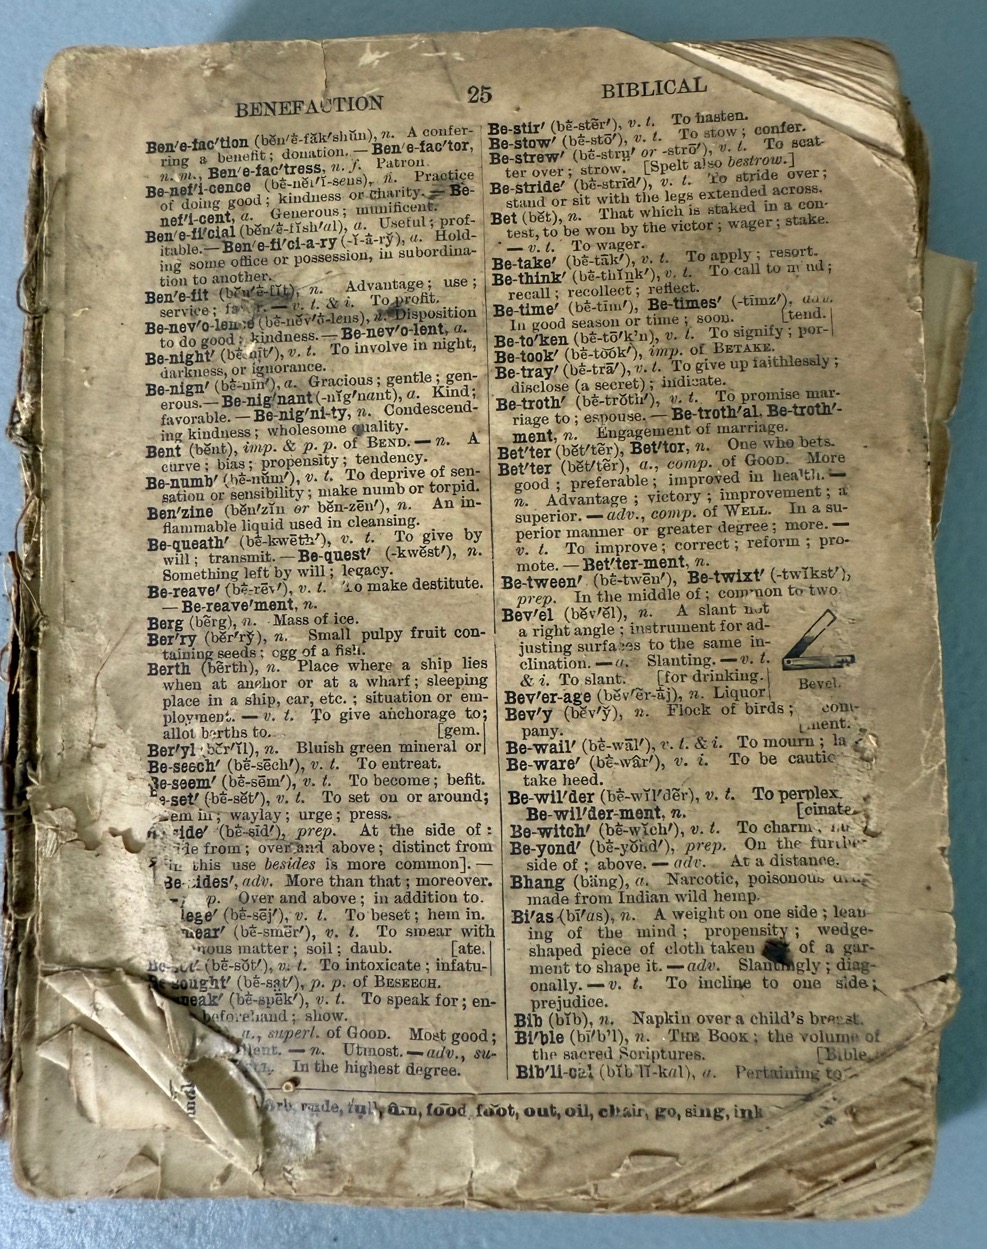 BENEFACTION 25 BIBLICAL
Ben′e-fac′tion (bĕn′ė-făk′shŭn), n. A confer-
ring a benefit; donation. — Ben′e-fac′tor,
n. m., Ben′e-fac′tress, n. f. Patron.
Be-nef′i-cence (bė-nĕf′ĭ-sens), n. Practice
of doing good; kindness or charity. — Be-
nef′i-cent, a. Generous; munificent.
Ben′e-fi′cial (bĕn′ė-fĭsh′al), a. Useful; prof-
itable. — Ben′e-fi′ci-a-ry (-ĭ-ȧ-rȳ), a. Hold-
ing some office or possession, in subordina-
tion to another.
Ben′e-fit (bĕn′ė-fĭt), n. Advantage; use;
service; — v. t. & i. To profit.
Be-nev′o-lence (bė-nĕv′ō-lens), n. Disposition
to do good; kindness. — Be-nev′o-lent, a.
Be-night′ (bė-nīt′), v. t. To involve in night,
darkness, or ignorance.
Be-nign′ (bė-nīn′), a. Gracious; gentle; gen-
erous. — Be-nig′nant (-nĭg′nant), a. Kind;
favorable. — Be-nig′ni-ty, n. Condescend-
ing kindness; wholesome quality.
Bent (bĕnt), imp. & p. p. of BEND. — n. A
curve; bias; propensity; tendency.
Be-numb′ (bė-nŭm′), v. t. To deprive of sen-
sation or sensibility; make numb or torpid.
Ben′zine (bĕn′zĭn or bĕn-zēn′), n. An in-
flammable liquid used in cleansing.
Be-queath′ (bė-kwēth′), v. t. To give by
will; transmit. — Be-quest′ (-kwĕst′), n.
Something left by will; legacy.
Be-reave′ (bė-rēv′), v. t. To make destitute.
— Be-reave′ment, n.
Berg (bẽrg), n. Mass of ice.
Ber′ry (bĕr′rȳ), n. Small pulpy fruit con-
taining seeds; egg of a fish.
Berth (bẽrth), n. Place where a ship lies
when at anchor or at a wharf; sleeping
place in a ship, car, etc.; situation or em-
ployment. — v. t. To give anchorage to;
allot berths to. [gem.
Ber′yl (bĕr′ĭl), n. Bluish green mineral or
Be-seech′ (bė-sēch′), v. t. To entreat.
Be-seem′ (bė-sēm′), v. t. To become; befit.
Be-set′ (bė-sĕt′), v. t. To set on or around;
hem in; waylay; urge; press.
ide′ (bė-sīd′), prep. At the side of:
from; over and above; distinct from
this use besides is more common]. —
Be-sides′, adv. More than that; moreover.
p. Over and above; in addition to.
lege′ (bė-sēj′), v. t. To beset; hem in.
mear′ (bė-smēr′), v. t. To smear with
matter; soil; daub. [ate.
Be-sot′ (bė-sŏt′), v. t. To intoxicate; infatu-
Be-sought′ (bė-sa̤t′), p. p. of BESEECH.
peak′ (bė-spēk′), v. t. To speak for; en-
beforehand; show.
a., superl. of GOOD. Most good;
lent. — n. Utmost. — adv., su-
In the highest degree.
Be-stir′ (bė-stẽr′), v. t. To hasten.
Be-stow′ (bė-stō′), v. t. To stow; confer.
Be-strew′ (bė-stru̱′ or -strō′), v. t. To scat-
ter over; strow. [Spelt also bestrow.]
Be-stride′ (bė-strīd′), v. t. To stride over;
stand or sit with the legs extended across.
Bet (bĕt), n. That which is staked in a con-
test, to be won by the victor; wager; stake.
— v. t. To wager.
Be-take′ (bė-tāk′), v. t. To apply; resort.
Be-think′ (bė-thĭnk′), v. t. To call to mind;
recall; recollect; reflect.
Be-time′ (bė-tīm′), Be-times′ (-tīmz′), adv.
In good season or time; soon. [tend.
Be-to′ken (bė-tō′k'n), v. t. To signify; por-
Be-took′ (bė-to͝ok′), imp. of BETAKE.
Be-tray′ (bė-trā′), v. t. To give up faithlessly;
disclose (a secret); indicate.
Be-troth′ (bė-trŏth′), v. t. To promise mar-
riage to; espouse. — Be-troth′al, Be-troth′-
ment, n. Engagement of marriage.
Bet′ter (bĕt′tẽr), Bet′tor, n. One who bets.
Bet′ter (bĕt′tẽr), a., comp. of GOOD. More
good; preferable; improved in health. —
n. Advantage; victory; improvement; a
superior. — adv., comp. of WELL. In a su-
perior manner or greater degree; more. —
v. t. To improve; correct; reform; pro-
mote. — Bet′ter-ment, n.
Be-tween′ (bė-twēn′), Be-twixt′ (-twĭkst′),
prep. In the middle of; common to two
Bev′el (bĕv′ĕl), n. A slant not
a right angle; instrument for ad-
justing surfaces to the same in-
clination. — a. Slanting. — v. t.
& i. To slant. [for drinking.
Bevel.
Bev′er-age (bĕv′ẽr-āj), n. Liquor
Bev′y (bĕv′ȳ), n. Flock of birds; com-
pany. [ment.
Be-wail′ (bė-wāl′), v. t. & i. To mourn; la
Be-ware′ (bė-wâr′), v. i. To be cautio
take heed.
Be-wil′der (bė-wĭl′dẽr), v. t. To perplex.
Be-wil′der-ment, n. [cinate.
Be-witch′ (bė-wĭch′), v. t. To charm;
Be-yond′ (bė-yŏnd′), prep. On the further
side of; above. — adv. At a distance.
Bhang (băng), a. Narcotic, poisonous
made from Indian wild hemp.
Bi′as (bī′as), n. A weight on one side; lean
ing of the mind; propensity; wedge-
shaped piece of cloth taken of a gar-
ment to shape it. — adv. Slantingly; diag-
onally. — v. t. To incline to one side;
prejudice.
Bib (bĭb), n. Napkin over a child's breast.
Bi′ble (bī′b'l), n. THE BOOK; the volume of
the sacred Scriptures. [Bible.
Bib′li-cal (bĭb′lĭ-kal), a. Pertaining to
ûrb, rude, full, ûrn, food, foot, out, oil, chair, go, sing, ink